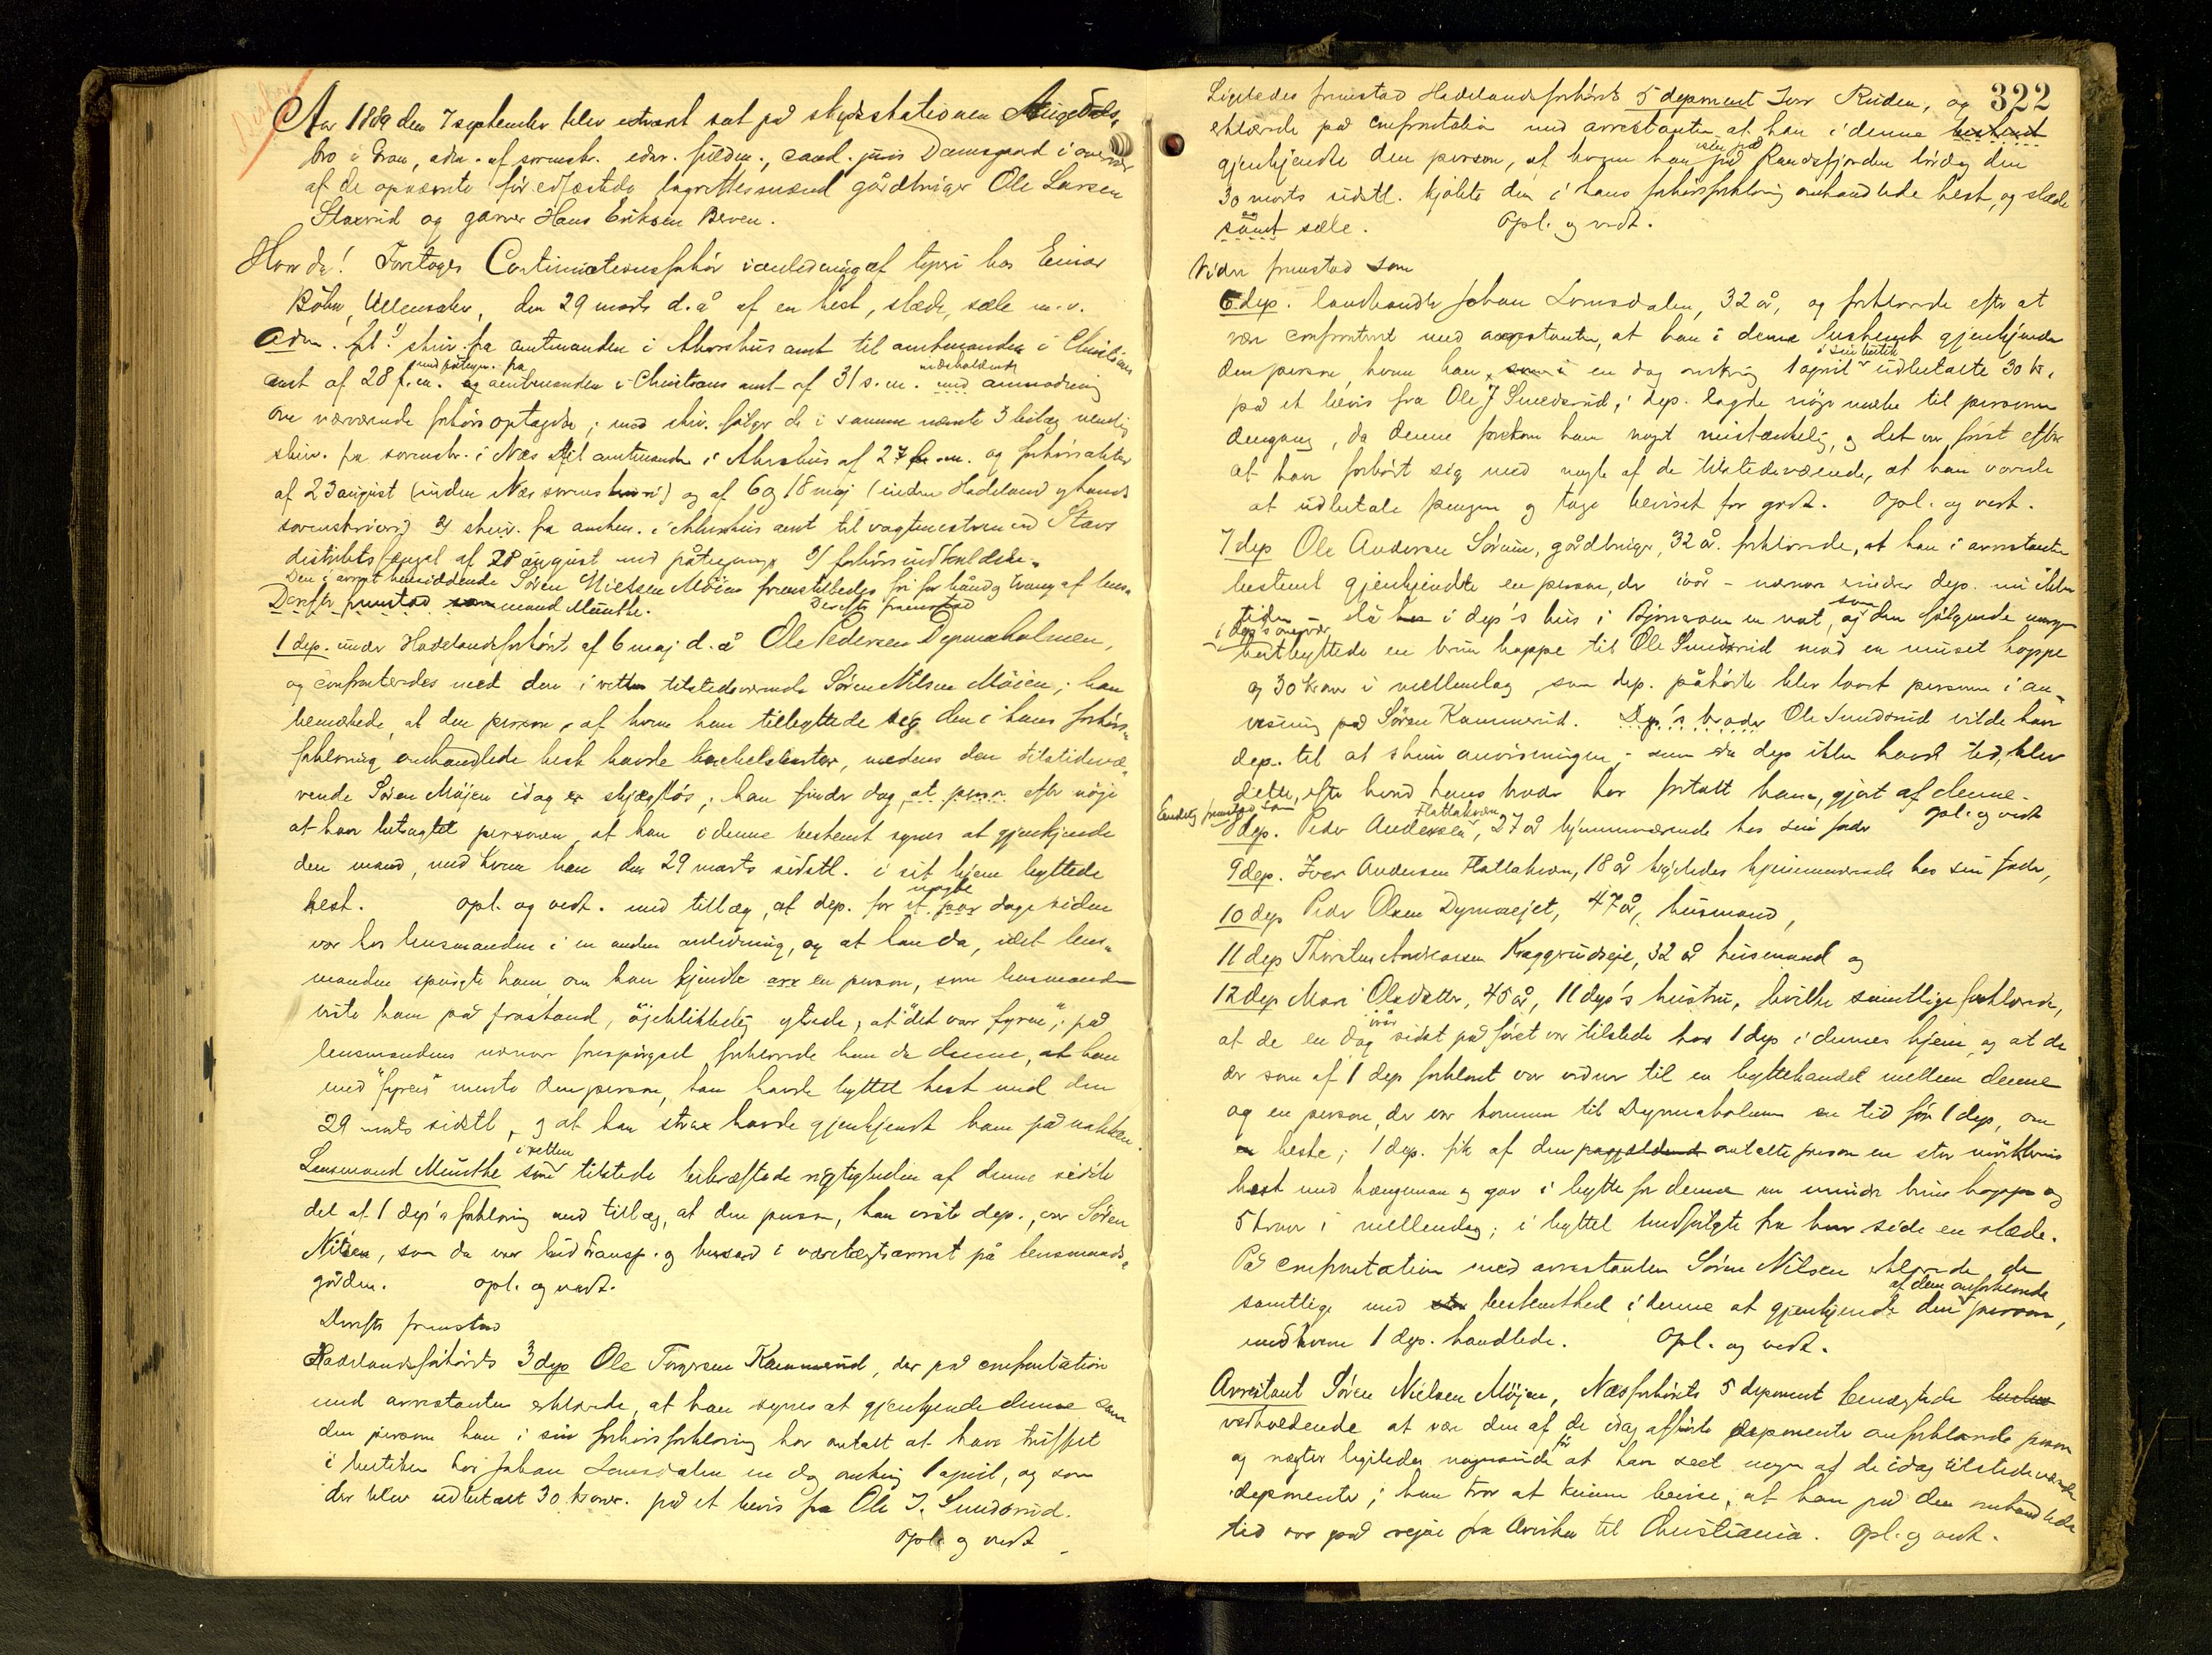 Aar 1889 den 7 september blev extraret sat på skydsstationen Augedals,
bro i Gran, adm. af sorenskr. edsv. fuldm., cand. juris Damsgaard i overvær
af de opnævnte før edfæstede lagrettesmænd gårdbruger Ole Larsen
Staxrud og garver Hans Eriksen Berven.
Hvor da! Foretages Continuationsforhør i anledning af tyveri hos Einar
Böhn, Ullensaker, den 29 marts d. å af en hest, slæde, sæle m. v.
Adm. fl. 1/ skriv. fra amtmanden i Akershus amt til amtmanden i Christians
amt af 28 f. m. med påtegn. fra amtmanden i Christians amt af 31 s. m. indeholdende anmodning
om nærværende forhørs optagelse; med skriv. følger de i samme nævnte 3 bilag nemlig
skriv. fra sorenskr. i Næs til amtmanden i Akershus af 27 f. m. og forhørsakter
af 23 august (inden Næs sorenskriveri) og af 6 og 18 maj (inden Hadeland og Lands
sorenskriveri) 2/ skriv. fra amtm. i Akershus amt til vagtmesteren ved Stavs
distriktsfængsel af 28 august med påtegninger 3/ forhørsindkaldelse.
Den i arrest hensiddende Søren Nielsen Möien fremstilledes fri for bånd og tvang af lens-
mand Munthe. Derefter fremstod
1 dep. under Hadelandsforhøret af 6 maj d. å Ole Pedersen Dynnaholmen,
og confronteredes med den i retten tilstedeværende Søren Nilsen Möien; han
bemærkede, at den person, af hvem han tilbyttede sig den i hans forhørs-
forklaring omhandlede hest havde bakkebarter, medens den tilstedevæ-
rende Søren Möjen idag er skjægløs; han finder dog, efter nøje
at have betragtet personen, at han i denne bestemt synes at gjenkjende
den mand, med hvem han den 29 marts sidstl. i sit hjem byttede
hest. Opl. og vedt. med tillæg, at dep. for nogle dage siden
var hos lensmanden i en anden anledning, og at han da, idet lens-
manden spurgte ham om han kjendte en person, som lensmanden
viste ham på frastand, öjeblikkelig ytrede, at "det var fyren"; på
lensmandens nærmere forespørgsel forklarede han da denne, at han
med "fyren" mente den person, han havde byttet hest med den
29 marts sidstl, og at han strax havde gjenkjendt ham på nakken.
Lensmand Munthe som i retten tilstede bekræftede rigtigheden af denne sidste
del af 1 dep's forklaring med tillæg, at den person, han viste dep., var Søren
Nilsen, som da var under transp. og hensad i varetægtsarrest på lensmands-
gården. Opl. og vedt.
Derefter fremstod
Hadelandsforhørets 3 dep Ole Torgersen Kammerud, der på confrontation
med arrestanten erklærede, at han synes at gjenkjende denne som
den person han i sin forhørsforklaring har omtalt at have truffet
i butiken hos Johan Lomsdalen en dag omkring 1 april, og som
der blev udbetalt 30 kroner på et bevis fra Ole J. Smedsrud.
Opl. og vedt
322
Ligeledes fremstod Hadelandsforhørets 5 deponent Iver Ruden, og
erklærede på confrontation med arrestanten at han i denne bestemt
gjenkjendte den person, af hvem han isen på Randsfjorden lördag den
30 marts sidstl. kjøbte den i hans forhørsforklaring omhandlede hest, og slæde
samt sæle. Opl. og vedt.
Videre fremstod som
6 dep. landhandler Johan Lomsdalen, 32 år, og forklarede efter at
være confronteret med arrestanten, at han i denne bestemt gjenkjender
den person, hvem han en dag omkring 1 april i sin butik udbetalte 30 kr.
på et bevis fra Ole J Smedsrud; dep. lagde nøje mærke til personen
dengang, da denne forekom ham noget mistænkelig, og det var først efter
at han forhørt sig med nogle af de tilstedeværende, at han vovede
at udbetale pengene og tage beviset for godt. Opl. og vedt.
7 dep Ole Andersen Sörum, gårdbruger, 32 år. forklarede, at han i arrestanten
bestemt gjenkjendte en person, der ivår - nærmere erindrer dep. nu ikke
tiden lå i dep's hus i Bjoneroa en nat, og som den følgende morgen
i dep's overvær bortbyttede en brun hoppe til Ole Smedsrud mod en muset hoppe
og 30 kroner i mellemlag, som dep. påhørte blev lovet personen i an-
visning på Søren Kammerud. Dep's broder Ole Smedsrud vilde have
dep. til at skrive anvisningen, - men da dep ikke havde tid, blev
dette, efter hvad hans broder har fortalt ham, gjort af denne.
Opl. og vedt
Endelig fremstod som
8 dep. Peder Andersen Flattakeren, 27 år hjemmeværende hos sin fader
9 dep. Iver Andersen Flattakeren, 18 år ligeledes hjemmeværende hos sin fader,
10 dep Peder Olsen Dynnaejet, 47 år, husmand,
11 dep Thorsten Andreassen Kraggrudseje, 32 år husmand og
12 dep Mari Olsdatter, 45 år, 11 dep's hustru, hvilke samtlige forklarede,
at de en dag ivår sidst på føret var tilstede hos 1 dep i dennes hjem og at de
der som af 1 dep forklaret var vidner til en byttehandel mellem denne
og en person, der var kommen til Dynnaholmen en tid før 1 dep, om
heste; 1 dep. fik af den omtalte person en stor mörkbrun
hest med hængeman og gav i bytte for denne en mindre brun hoppe og
5 kroner i mellemlag; i byttet medfulgte fra hver side en slæde.
På confrontation med arrestanten Søren Nilsen erklærede de
samtlige med bestemthed i denne at gjenkjende den af dem omforklarede person,
med hvem 1 dep. handlede. Opl. og vedt.
Arrestant Søren Nielsen Möjen, Næsforhørets 5 deponent benægtede
vedholdende at være den af de idag afhørte deponenter omforklarede person
og nægter ligeledes nogensinde før at have seet nogen af de idag tilstedeværende
deponenter; han tror at kunne bevise, at han på den omhandlede
tid var på rejse fra Arvika til Christiania. Opl. og vedt.